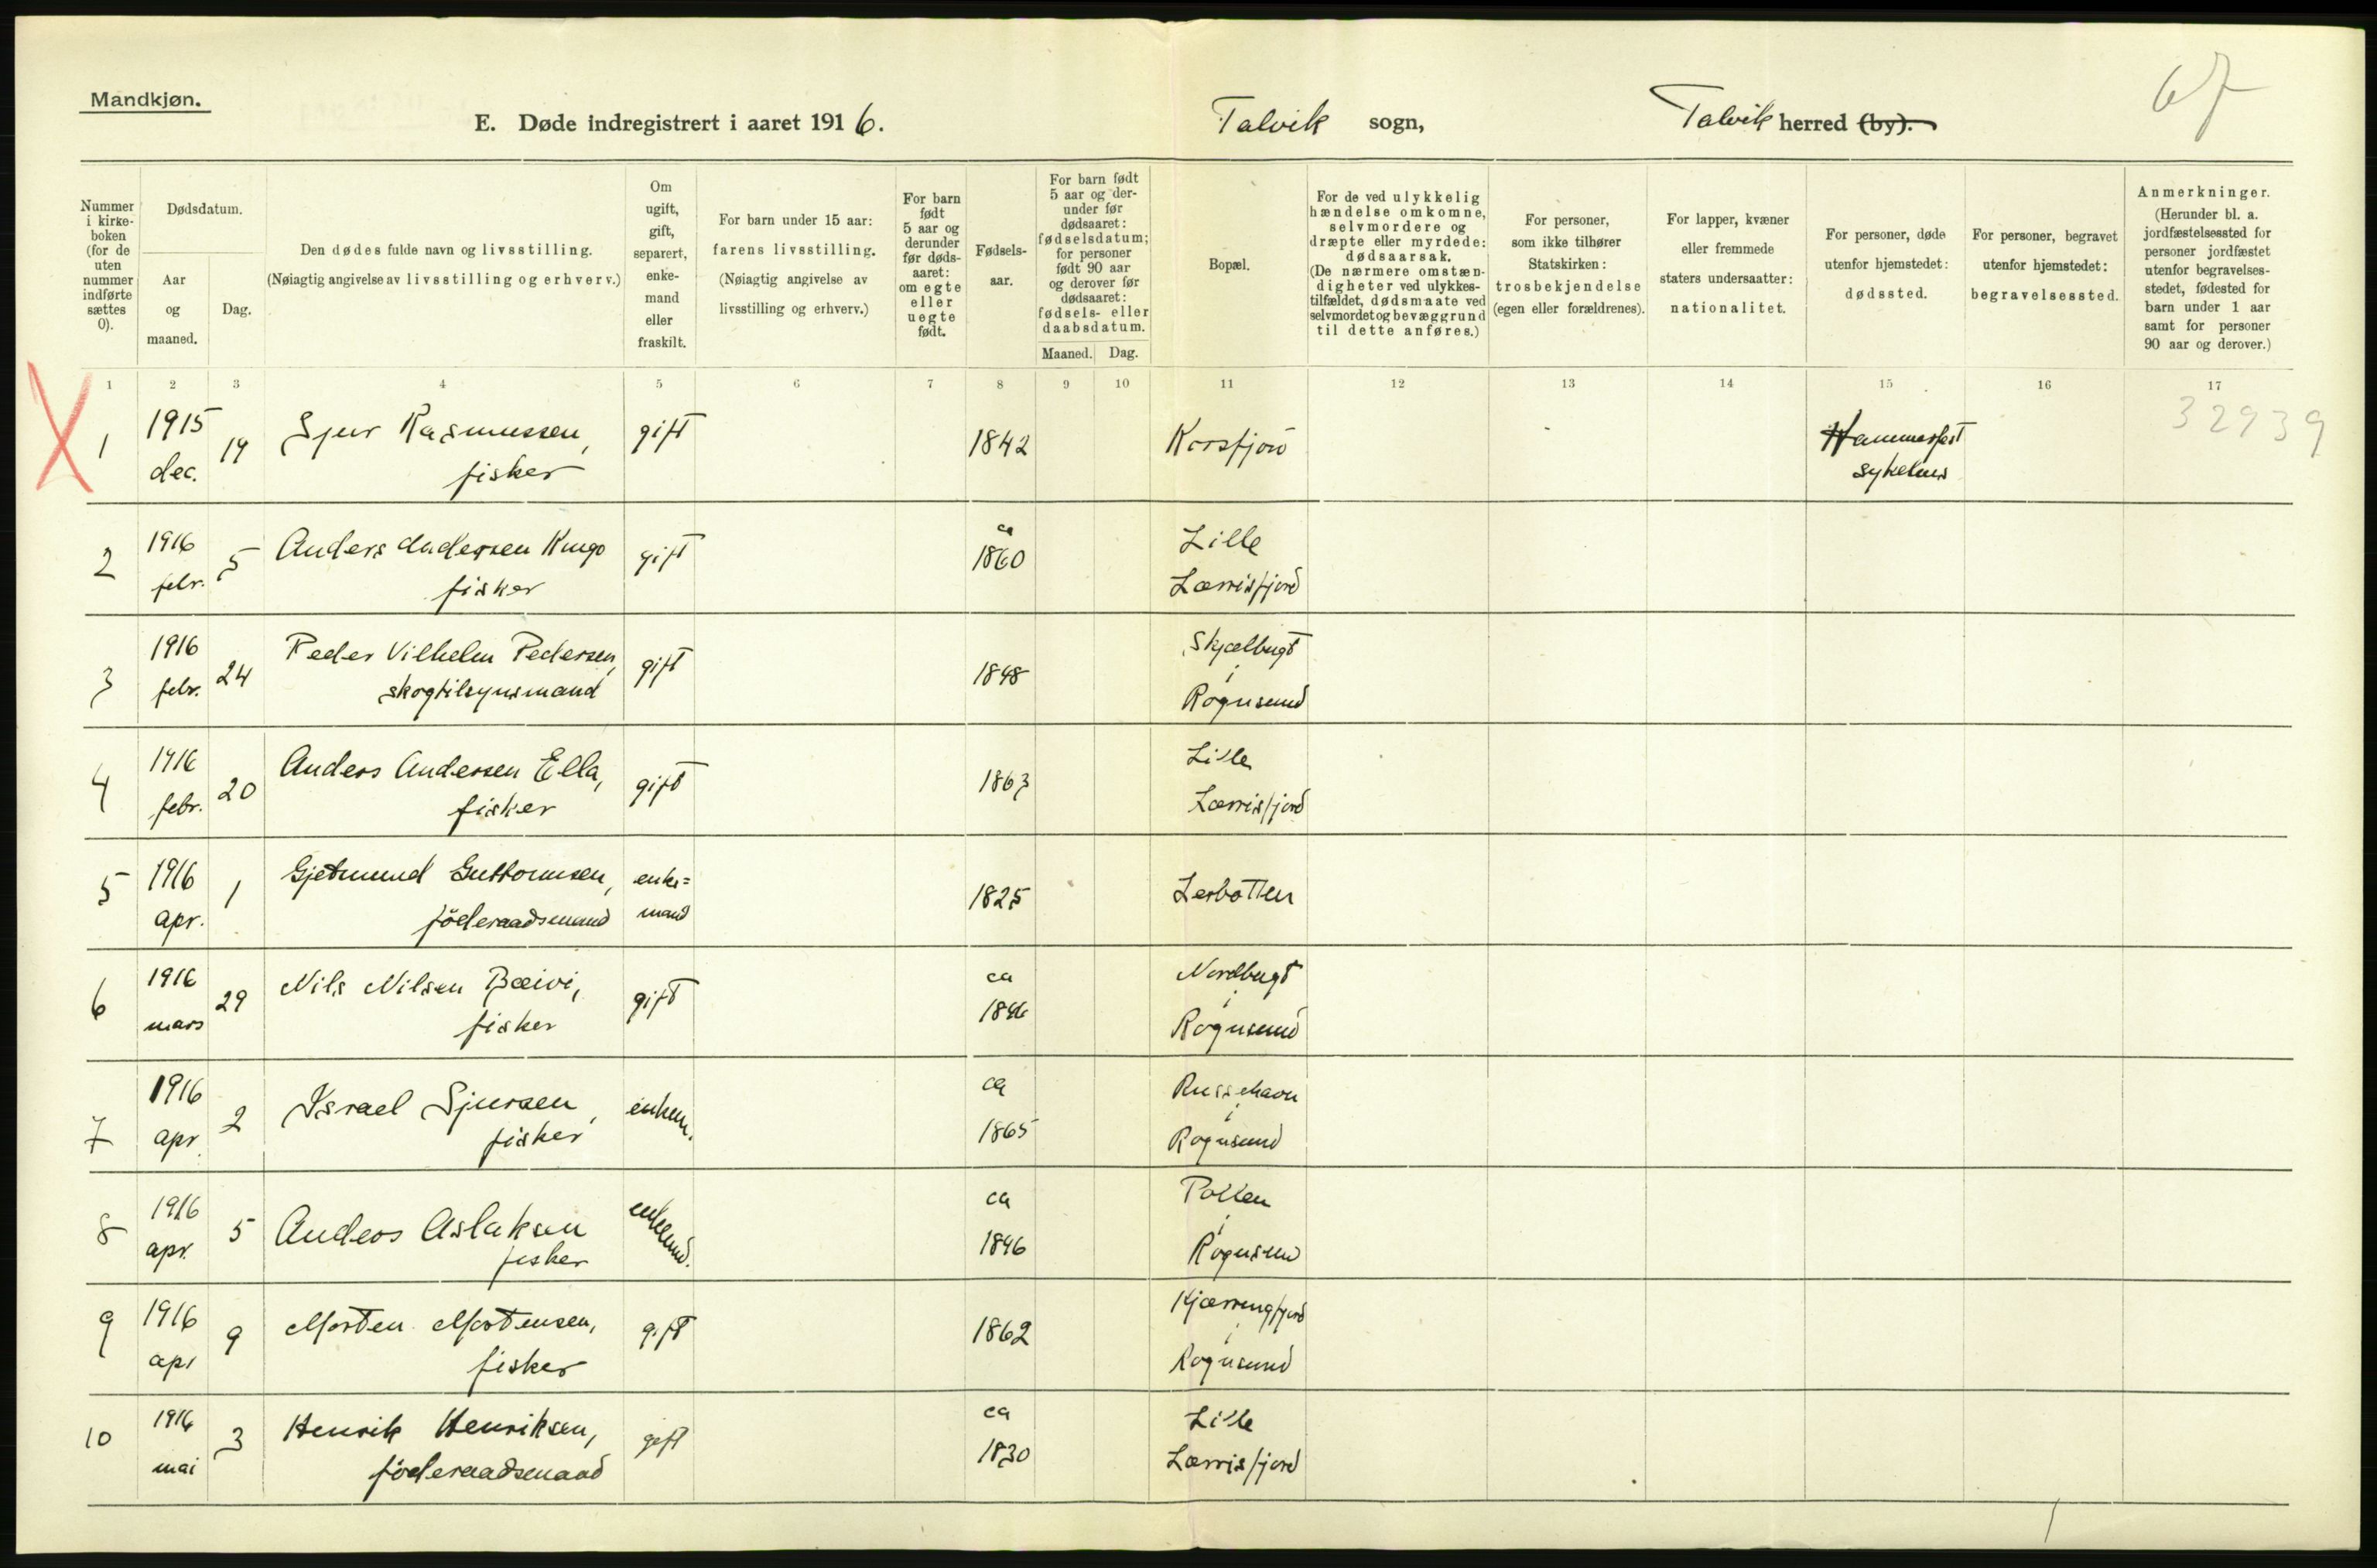 Mandkjøn.
E. Døde indregistrert i aaret 1916.
Talvik sogn,
Talvik herred (by).
67
Nummer i kirke-boken (for de uten nummer indførte sættes 0).
Dødsdatum.
Aar og maaned.
Dag.
Den dødes fulde navn og livsstilling.
(Nøiagtig angivelse av livsstilling og erhverv.)
Om ugift, gift, separert, enke-mand eller fraskilt.
For barn under 15 aar: farens livsstilling.
(Nøiagtig angivelse av livsstilling og erhverv.)
For barn født 5 aar og derunder før døds-aaret: om egte eller uegte født.
Fødsels-aar.
For barn født 5 aar og der-under før dødsaaret: fødselsdatum; for personer født 90 aar og derover før dødsaaret: fødsels- eller daabsdatum.
Maaned. Dag.
Bopæl.
For de ved ulykkelig hændelse omkomne, selvmordere og dræpte eller myrdede: dødsaarsak.
(De nærmere omstæn-digheter ved ulykkes-tilfældet, dødsmaate ved selvmordet og bevæggrund til dette anføres.)
For personer, som ikke tilhører Statskirken: trosbekjendelse (egen eller forældrenes).
For lapper, kvæner eller fremmede staters undersaatter: nationalitet.
For personer, døde utenfor hjemstedet: dødssted.
For personer, begravet utenfor hjemstedet: begravelsessted.
Anmerkninger.
(Herunder bl. a. jordfæstelsessted for personer jordfæstet utenfor begravelses-stedet, fødested for barn under 1 aar samt for personer 90 aar og derover.)
1 2 3 4 5 6 7 8 9 10 11 12 13 14 15 16 17
1 1915 dec. 19 Sjur Rasmussen, fisker gift 1842 Korsfjord Hammerfest sykehus 32939
2 1916 febr. 5 Anders Andersen Kingo fisker gift ca 1860 Lille Lærrisfjord
3 1916 febr. 24 Peder Vilhelm Pedersen, skogtilsynsmand gift 1848 Skjælbugt i Rognsund
4 1916 febr. 20 Anders Andersen Ella, fisker gift 1863 Lille Lærrisfjord
5 1916 apr. 1 Gjetmund Guttormsen, föderaadsmand enke=mand 1825 Lerbotten
6 1916 mars 29 Nils Nilsen Bæivi, fisker gift ca 1846 Nordbugt i Rognsund
7 1916 apr. 2 Israel Sjursen, fisker enkem. ca 1865 Russehavn i Rognsund
8 1916 apr. 5 Anders Aslaksen fisker enkemd. ca 1846 Pollen i Rognsund
9 1916 apr 9 Morten Mortensen, fisker gift 1862 Kjærringfjord i Rognsund
10 1916 mai 3 Henrik Henriksen, föderaadsmand gift ca 1830 Lille Lærrisfjord